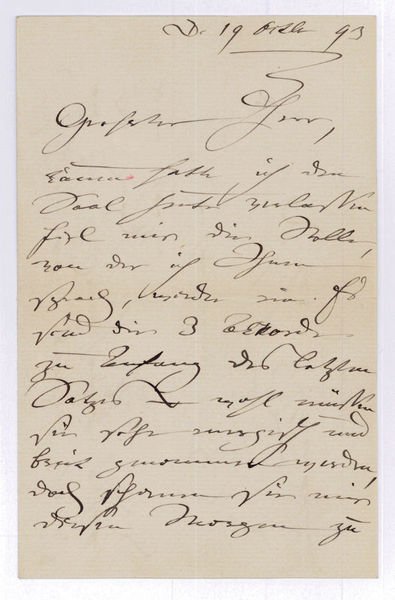 D. 19 Octbr 93
Geehrter Herr,
kaum hatte ich den
Saal heute verlassen
fiel mir die Stelle,
von der ich Ihnen
sprach, wieder ein. Es
sind die 3 Akkorde
zu Anfang des letzten
Satzes – wohl müssen
sie sehr energisch und
breit genommen werden,
doch schienen sie mir
diesen Morgen zu